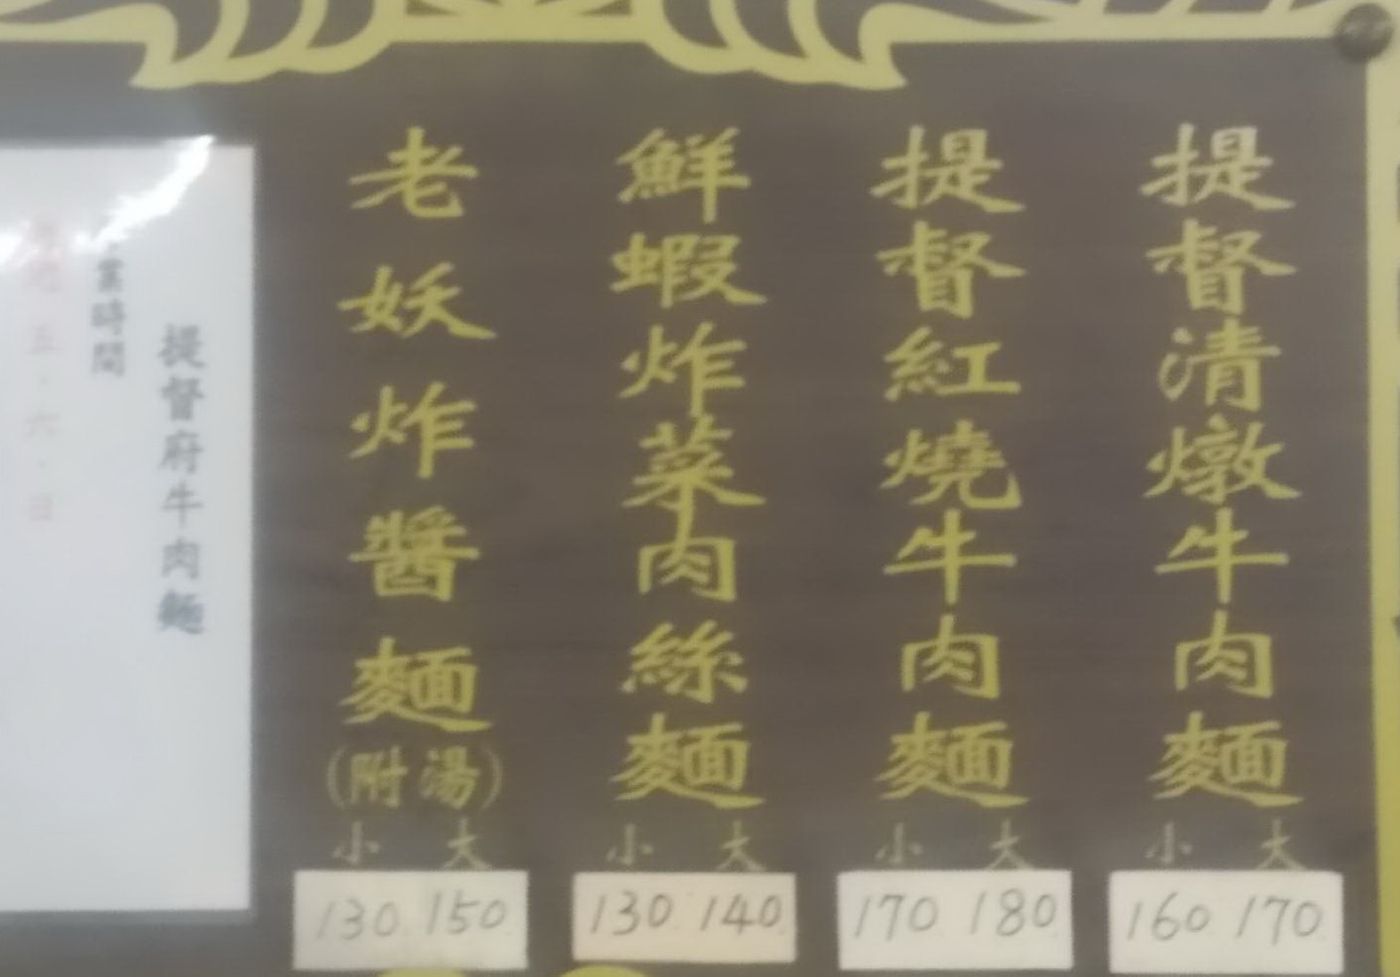 提督清燉牛肉麵
小 大
160 170
提督紅燒牛肉麵
小 大
170 180
鮮蝦炸菜肉絲麵
小 大
130 140
老妖炸醬麵
(附湯)
小 大
130 150
提督府牛肉麵
業時間
五.六.日